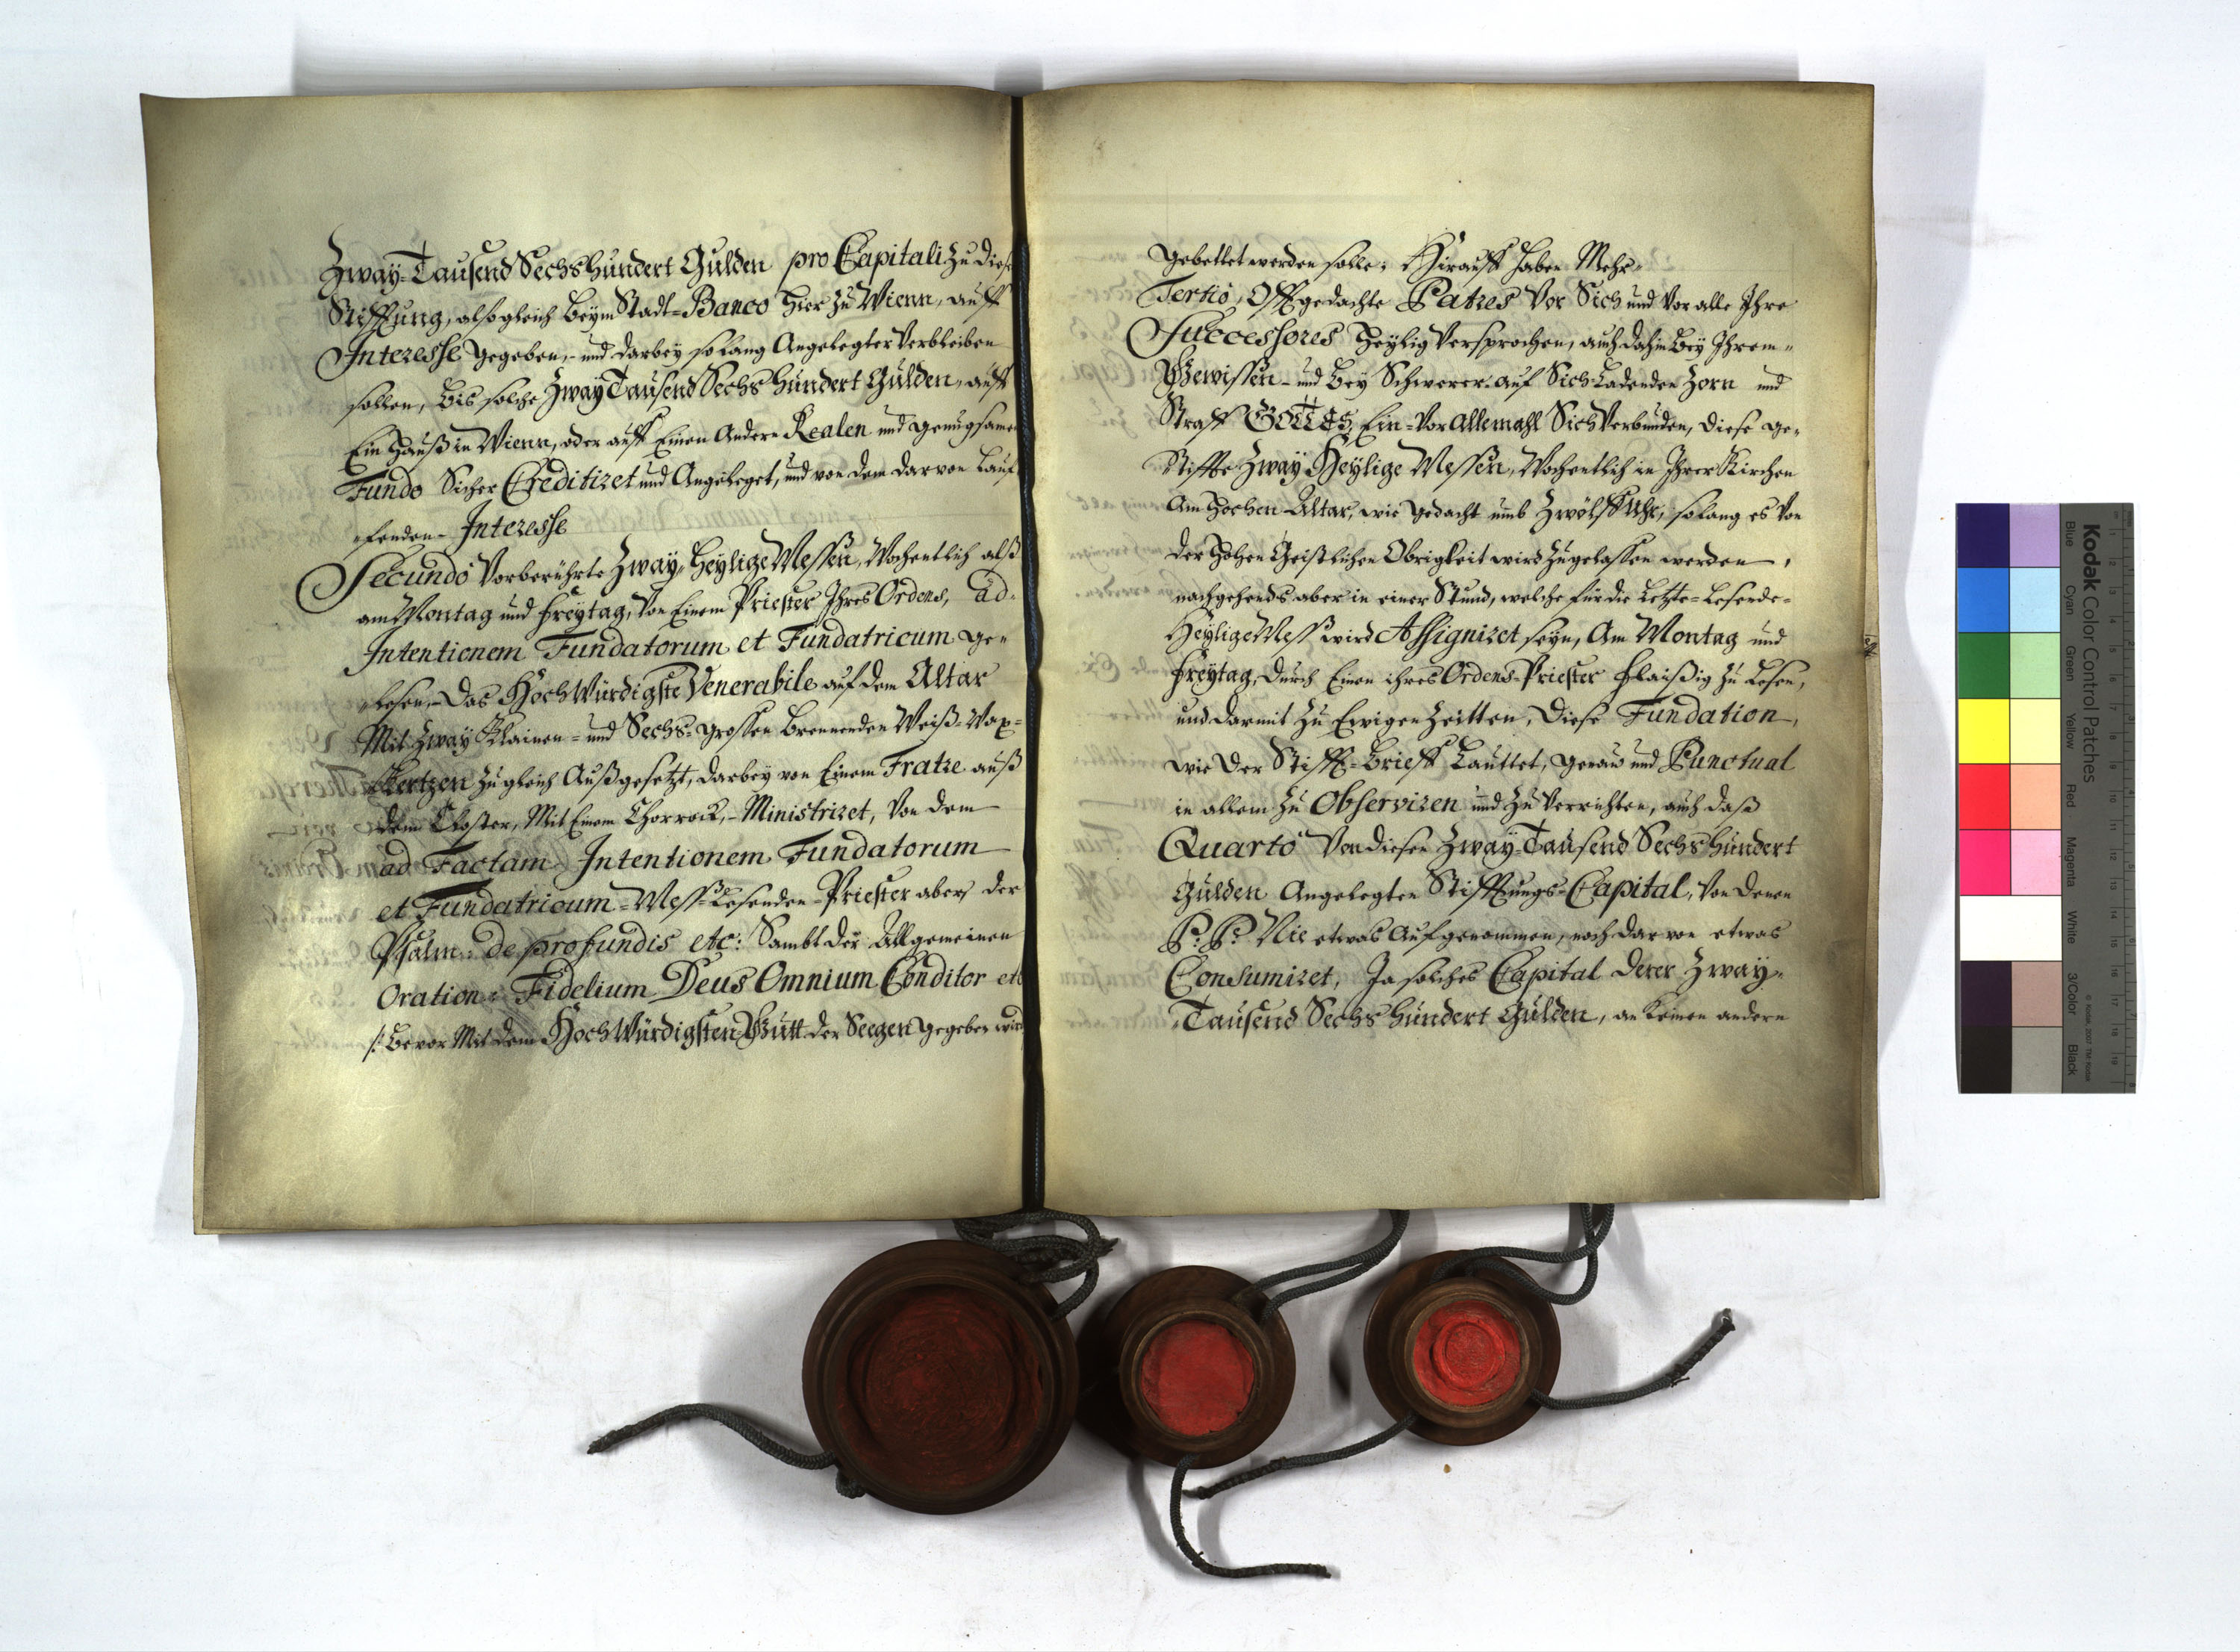 Zway-Tausend Sechshundert Gulden pro Capitali zu diese
Stifftung, alsogleich beym Stadt-Banco hier zu Wienn, auff
Interesse gegeben,- und darbey so lang Angelegter Verbleiben
sollen, bis solche Zway Tausend Sechs hundert Gulden, auff
Ein Hauß in Wienn, oder auff Einen Andern Realen und genugsamen
Fundo Sicher Creditiret und Angeleget, und von dem darvon Lauf
fenden- Interesse
Secundò Vorberührte Zway, Heylige Messen, Wochentlich alß
am Montag und Freytag, Von Einem Priester Ihres Ordens, ad-
Intentionem Fundatorum et Fundatricum ge=
lesen,- Das HochWürdigste Venerabile auf dem Altar
Mit Zway Klainen= und Sechs= grossen brennenden Weiß-Wax=
Kertzen zugleich Außgesetzt, darbey von Einem Fratre auß
dem Closter, Mit Einem Chorrock,- Ministriret, Von dem
ad Factam Intentionem Fundatorum
et Fundatricum= Meß= Lesenden= Priester aber, der
Psalm: de profundis etc: Sambt der Allgemeinen
Oration: Fidelium Deus Omnium Conditor etc
/: bevor Mit dem HochWürdigsten Gutt der Seegen gegeben wird
gebettet werden solle; Hirauff haben Mehr=
Tertiò, Offtgedachte Patres Vor Sich und Vor alle Ihre
Successores Heylig Versprochen, auch dahin bey Ihrem=
Gewissen- und bey Schwerer auf Sich Ladenden Zorn und
Straff GOTTES, Ein= Vor Allemahl Sich Verbunden, diese ge=
stiffte Zway Heylige Messen, Wochentlich in Ihrer Kirchen
Am Hochen Altar, wie gedacht umb Zwölff Uhr, solang es Von
der Hohen Geistlichen Obrigkeit wird zugelassen werden,
nachgehends aber in einer Stund, welche für die Letzte= Lesende=
Heylige Mess wird Assigniret seyn, Am Montag und
Freytag, durch Einen ihres Ordens-Priester Flaißig zu Lesen,
und darmit zu Ewigen Zeitten, diese Fundation,
wie der Stifft-brieff Lauttet, genau und Punctual
in allem zu Observiren und zu Verrichten, auch daß
Quartò Von diesen Zway-Tausend Sechs hundert
Gulden Angelegten Stifftungs-Capital, Von denen
P: P: Nie etwas Aufgenommen, noch darvon etwas
Consumiret, Ja solches Capital derer Zway=
Tausend Sechs hundert Gulden, an Keinen andern
Kodak Color Control Patches
Blue Cyan Green Yellow Red Magenta White 3/Color Black